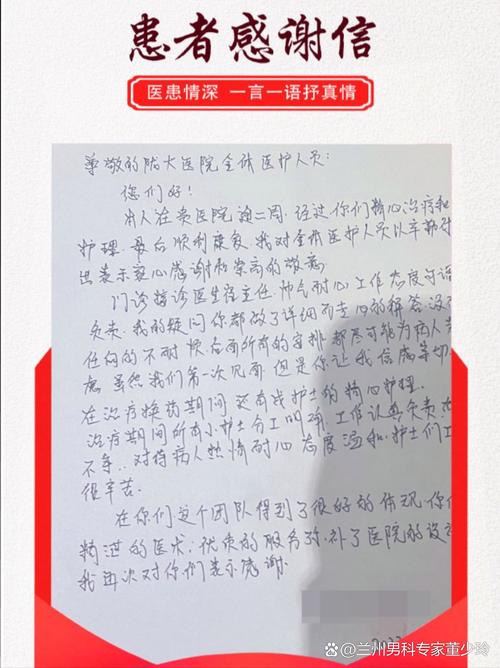 患者感谢信
医患情深 一言一语抒真情
尊敬的陇大医院全体医护人员:
您们好!
本人在贵医院 二周. 经过你们精心治疗和
护理. 最后顺利康复, 我对全体医护人员以辛勤付
出表示衷心感谢和崇高的敬意
门诊接诊医生 主任, 帅气耐心工作态度
负责. 我的疑问你都做了详细而走心的解答 没
任何的不耐烦. 后面所有的安排 都尽可能为病人
虑 虽然我们第一次见面, 但是你让我信 等切
在治疗换药期间 还有战护士的精心护理.
治疗期间所有小护士分工明确, 工作认真负责
不等.. 对待病人热情耐心 态度温和. 护士们
很辛苦.
在你们这个团队得到了很好的体现. 你们
精湛的医术, 优质的服务弥补了医院的设
我再次对你们表示感谢.
202
@兰州男科专家董少玲